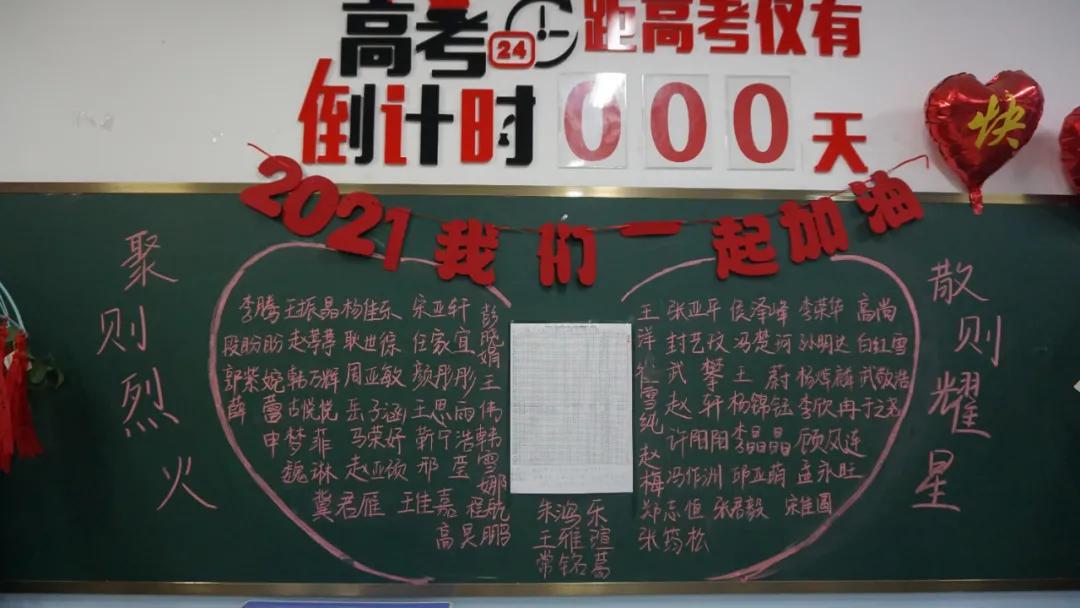 高考24距高考仅有
倒计时000天
快
2021我们一起加油
聚则烈火
散则耀星
李腾 王振晶 杨佳乐 宋亚轩
段盼盼 赵梦 耿世综 任家宜
郭紫婉 韩万辉 周亚敏 颜彤彤
薛蕾 古悦悦 岳子涵 王思雨
申梦菲 马荣妤 靳宁浩
魏琳 赵亚领 邢莹
冀君雁 王佳嘉 程航
高昊鹏
彭晓娟
王伟
韩雪娜
朱鸿乐
王雅暄
常铭葛
王洋
任雪纯
赵梅
张亚平 侯泽峰 李荣华 高尚
封艺玟 冯楚珂 孙明达 白红雪
武攀 王蔚 杨烨麟 武敬浩
赵轩 杨锦钰 李欣冉 于之尧
许阳阳 李晶晶 顾风连
冯作洲 邱亚萌 孟永旺
郑志恒 张君毅 宋佳圆
张药松